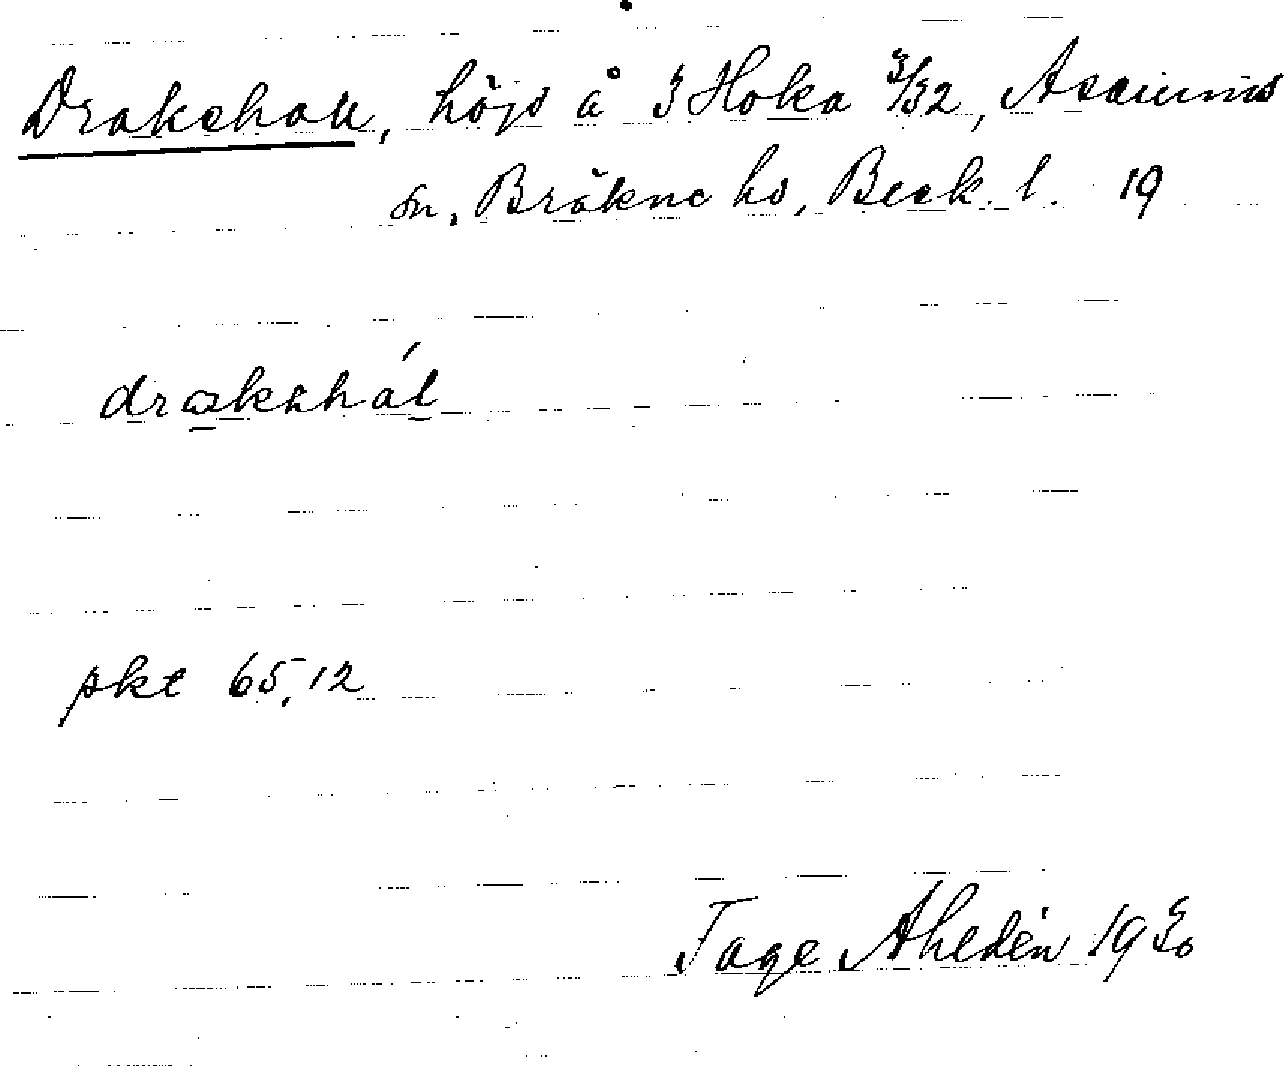 Drakshall, höjd å 3 Hoka 3/32, Asarums
sn, Bräkne hd, Blek. l. 19
pkt 65,12
Tage Ahldén 1930